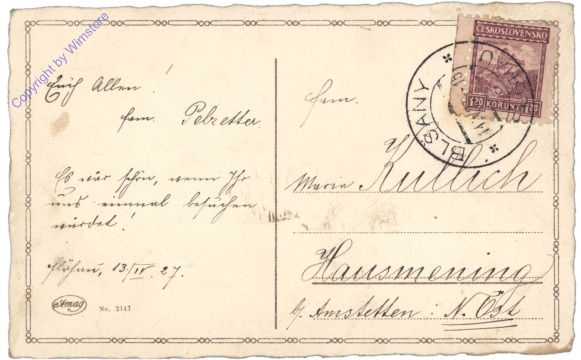 Copyright by Wimstore
Euch Allen!
fam. Pelzetter.
Es wär schön, wenn Ihr
uns einmal besuchen
würdet!
Flöhau, 13./IV. 27.
Amag
No. 2147
ČESKOSLOVENSKO
1.20 KORUNY 1.20
BLŠANY
Fam.
Marie Kullich
Hausmening
b/ Amstetten: N. Öst